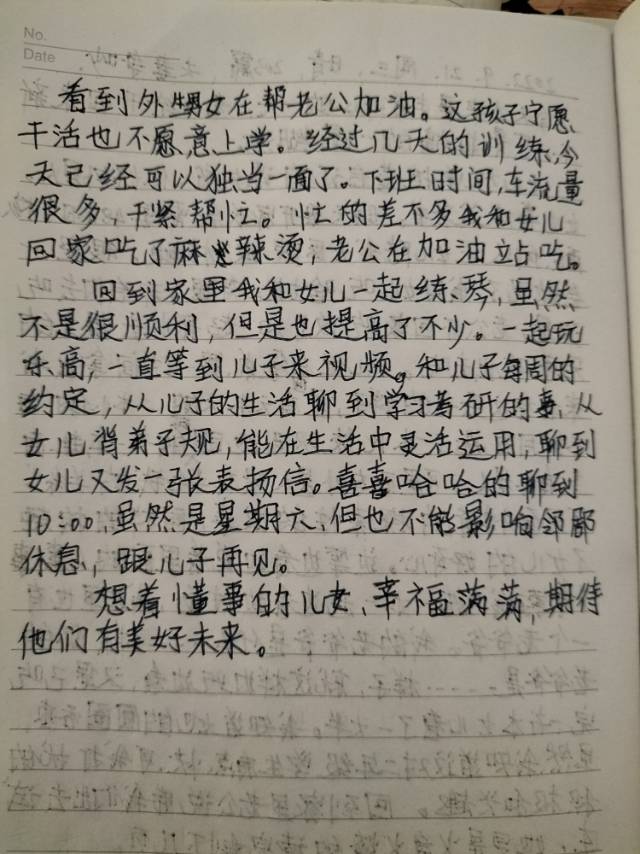 No.
Date
看到外甥女在帮老公加油。这孩子宁愿
干活也不愿意上学。经过几天的训练,今
天已经可以独当一面了。下班时间,车流量
很多,干紧帮忙。忙的差不多我和女儿
回家吃了麻辣烫,老公在加油站吃。
回到家里我和女儿一起练琴,虽然
不是很顺利,但是也提高了不少。一起玩
乐高,一直等到儿子来视频。和儿子每周的
约定,从儿子的生活聊到学习考研的事,从
女儿背弟子规,能在生活中灵活运用,聊到
女儿又发一张表扬信。喜喜哈哈的聊到
10:00,虽然是星期六,但也不能影响邻郡
休息,跟儿子再见。
想着懂事的儿女,幸福满满,期待
他们有美好未来。